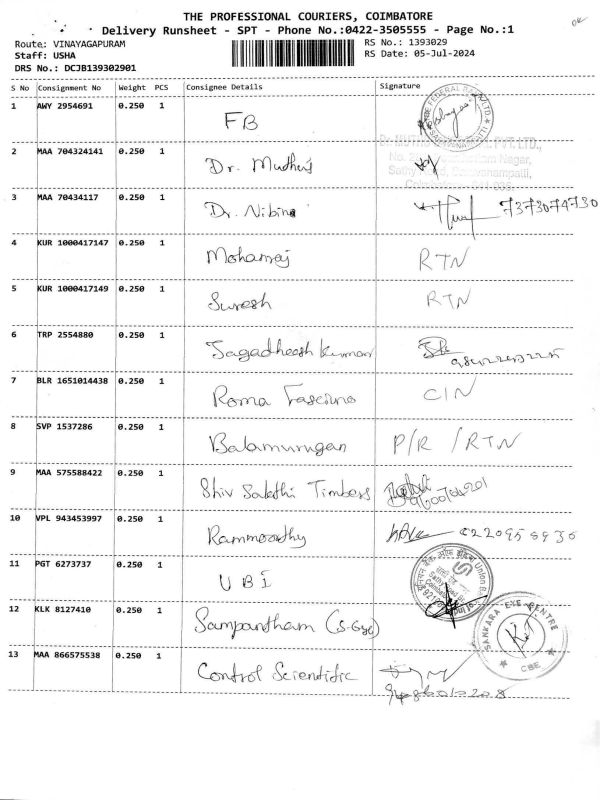 THE PROFESSIONAL COURIERS, COIMBATORE
Delivery Runsheet - SPT - Phone No.:0422-3505555 - Page No.:1
Route: VINAYAGAPURAM RS No.: 1393029
Staff: USHA RS Date: 05-Jul-2024
DRS No.: DCJB139302901
S No Consignment No Weight PCS Consignee Details Signature
1 AWY 2954691 0.250 1 FB
2 MAA 704324141 0.250 1 Dr. Muthu's
3 MAA 70434117 0.250 1 Dr. Nibina 7373074730
4 KUR 1000417147 0.250 1 Mohanraj RTN
5 KUR 1000417149 0.250 1 Suresh RTN
6 TRP 2554880 0.250 1 Jagadheesh Kumar
7 BLR 1651014438 0.250 1 Roma C/N
8 SVP 1537286 0.250 1 Balamurugan P/R /RTN
9 MAA 575588422 0.250 1 Shiv Sakthi Timbers
10 VPL 943453997 0.250 1 Rammoorthy
11 PGT 6273737 0.250 1 UBI
12 KLK 8127410 0.250 1 Sampantham (S-Eye) SANKARA EYE CENTRE CBE
13 MAA 866575538 0.250 1 Control Scientific